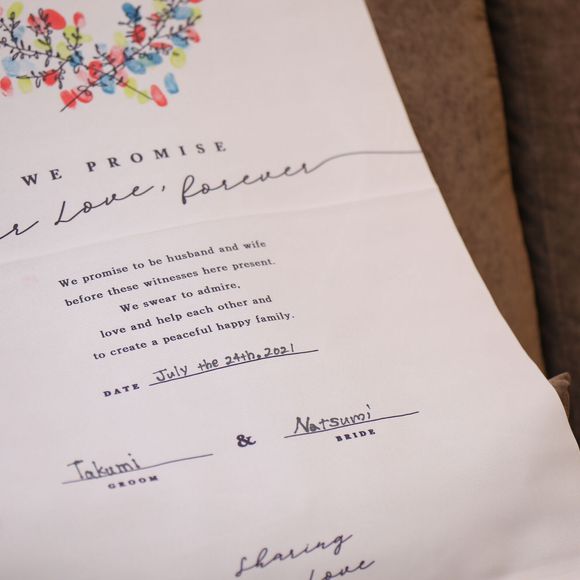 WE PROMISE
Love, forever
We promise to be husband and wife
before these witnesses here present.
We swear to admire,
love and help each other and
to create a peaceful happy family.
DATE July the 24th, 2021
Takumi & Natsumi
GROOM BRIDE
sharing
love